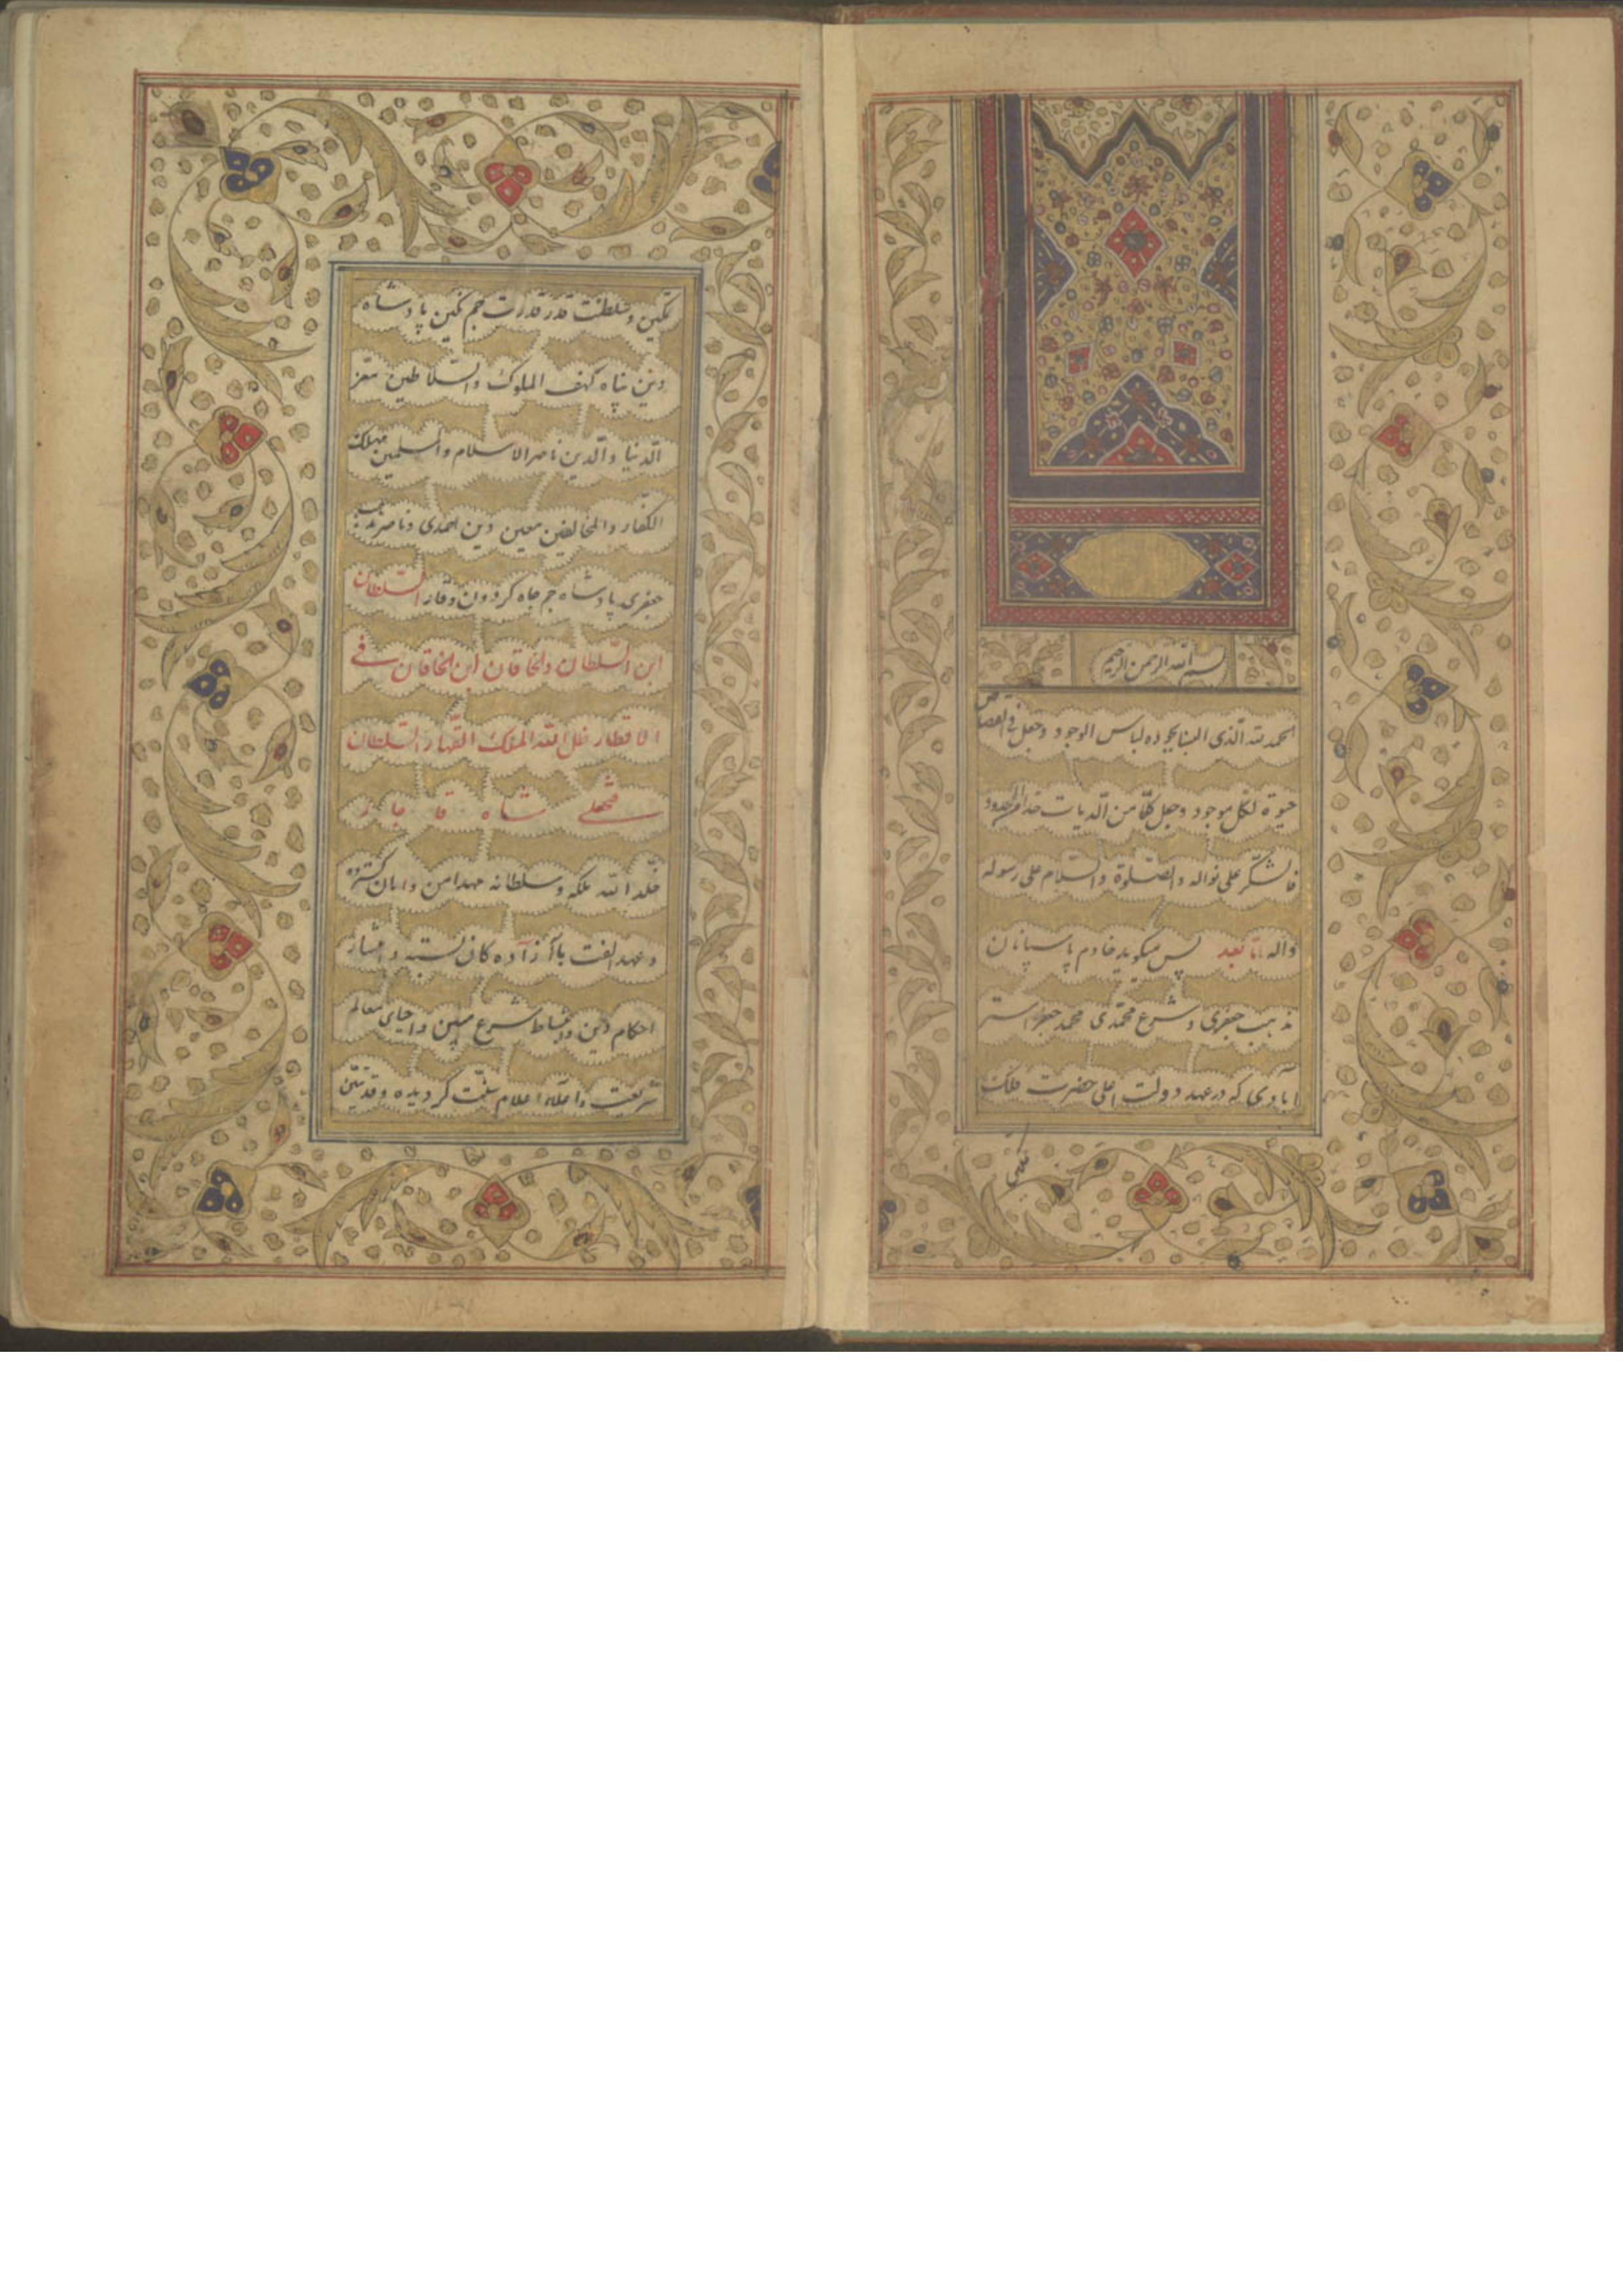 بسم الله الرحمن الرحیم
الحمد لله الذی البسنا بجوده لباس الوجود وجعل فی القصاص
حیوة لکل موجود وجعل کلا من الدیات
فالشکر علی نواله والصلوة والسلام علی رسوله
وآله اما بعد پس میگوید خادم پاسبانان
مذهب جعفری و شرع محمدی محمد جعفر استر
ابادی که در عهد دولت اعلی حضرت فلک
تمکین
تمکین و سلطنت قدر قدرت جم نگین پادشاه
دین پناه کهف الملوک والسلاطین معز
الدنیا والدین ناصر الاسلام والمسلمین مهلک
الکفار والمخالفین معین دین احمدی و ناصر مذهب
جعفری پادشاه جم جاه کردون وقار السلطان
ابن السلطان والخاقان ابن الخاقان فی
الاقطار ظل الله الملک القهار السلطان
فتحعلی شاه قاجار
خلد الله ملکه وسلطانه مهد امن وامان کسترده
وعهد الفت با آزاده کان بسته و
احکام دین و شرع مبین و احیای معالم
شریعت و اعلام کردیده و